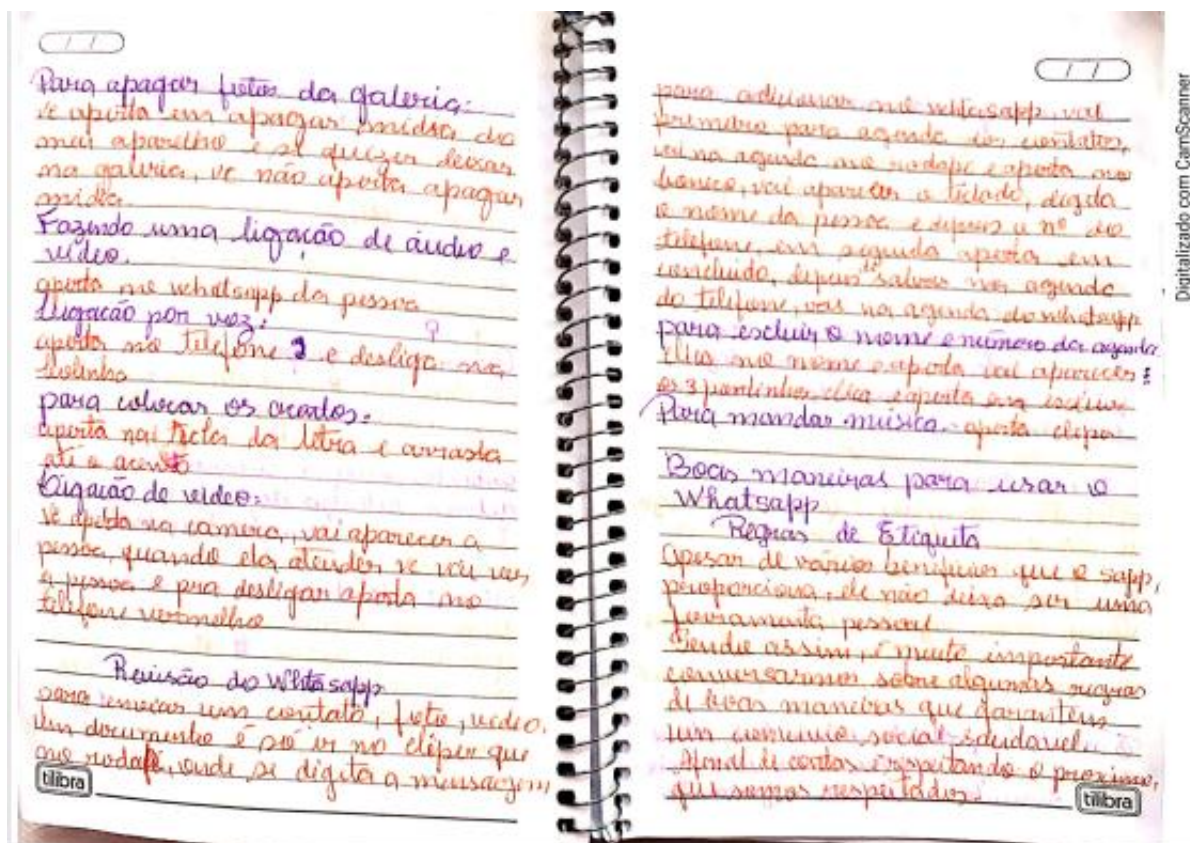 Para apagar fotos da galeria:
vc aperta em apagar mídia do
meu aparelho e se quizer deixar
na galeria, vc não aperta apagar
mídia.
Fazendo uma ligação de áudio e
vídeo.
aperta no whatsapp da pessoa
Ligação por voz:
aperta no telefone e desliga no
para colocar os acentos:
aperta na tecla da letra e arrasta
até o acento
Ligação de vídeo:
vc aperta na camera, vai aparecer a
pessoa, quando ela atender vc vai ver
a pessoa e pra desligar aperta no
telefone vermelho
Revisão do Whatsapp
para enviar um contato, foto, vídeo,
um documento é só ir no clipe que
no rodapé, onde se digita a mensagem
tilibra
para adicionar no whatsapp, vai
primeiro para agenda dos contatos,
vai na agenda no rodapé e aperta no
boneco, vai aparecer o teclado, digita
o nome da pessoa e depois o nº do
telefone, em seguida aperta em
concluido, depois de salvar na agenda
do telefone, vas na agenda do whatsapp
para excluir o nome e número da agenda:
clica no nome e aperta vai aparecer
os 3 pontinhos clica e aperta em excluir
Para mandar música. aperta clipe
Boas maneiras para usar o
Whatsapp
Regras de Etiqueta
Apesar de vários benefícios que o sapp,
proporciona, ele não deixa ser uma
ferramenta pessoal
Sendo assim, é muito importante
conversarmos sobre algumas regras
de boas maneiras que garantem
um convívio social saudavel.
Afinal de contas respeitando o proximo,
que somos respeitados.
tilibra
Digitalizado com CamScanner